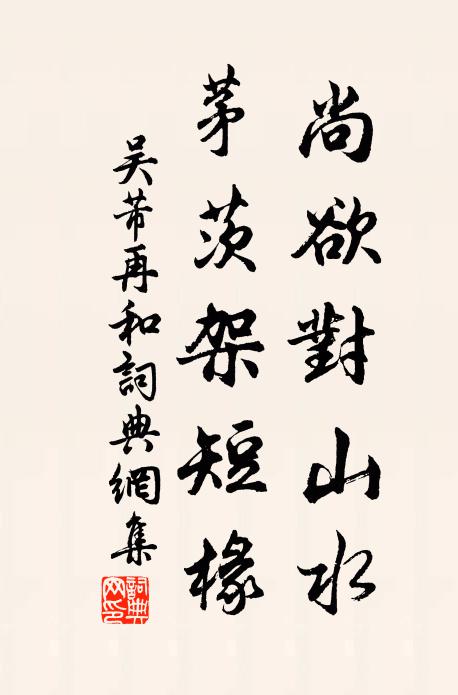 尚欲對山水
茅茨架短椽
吳芾再和詞典網集
詞典網印